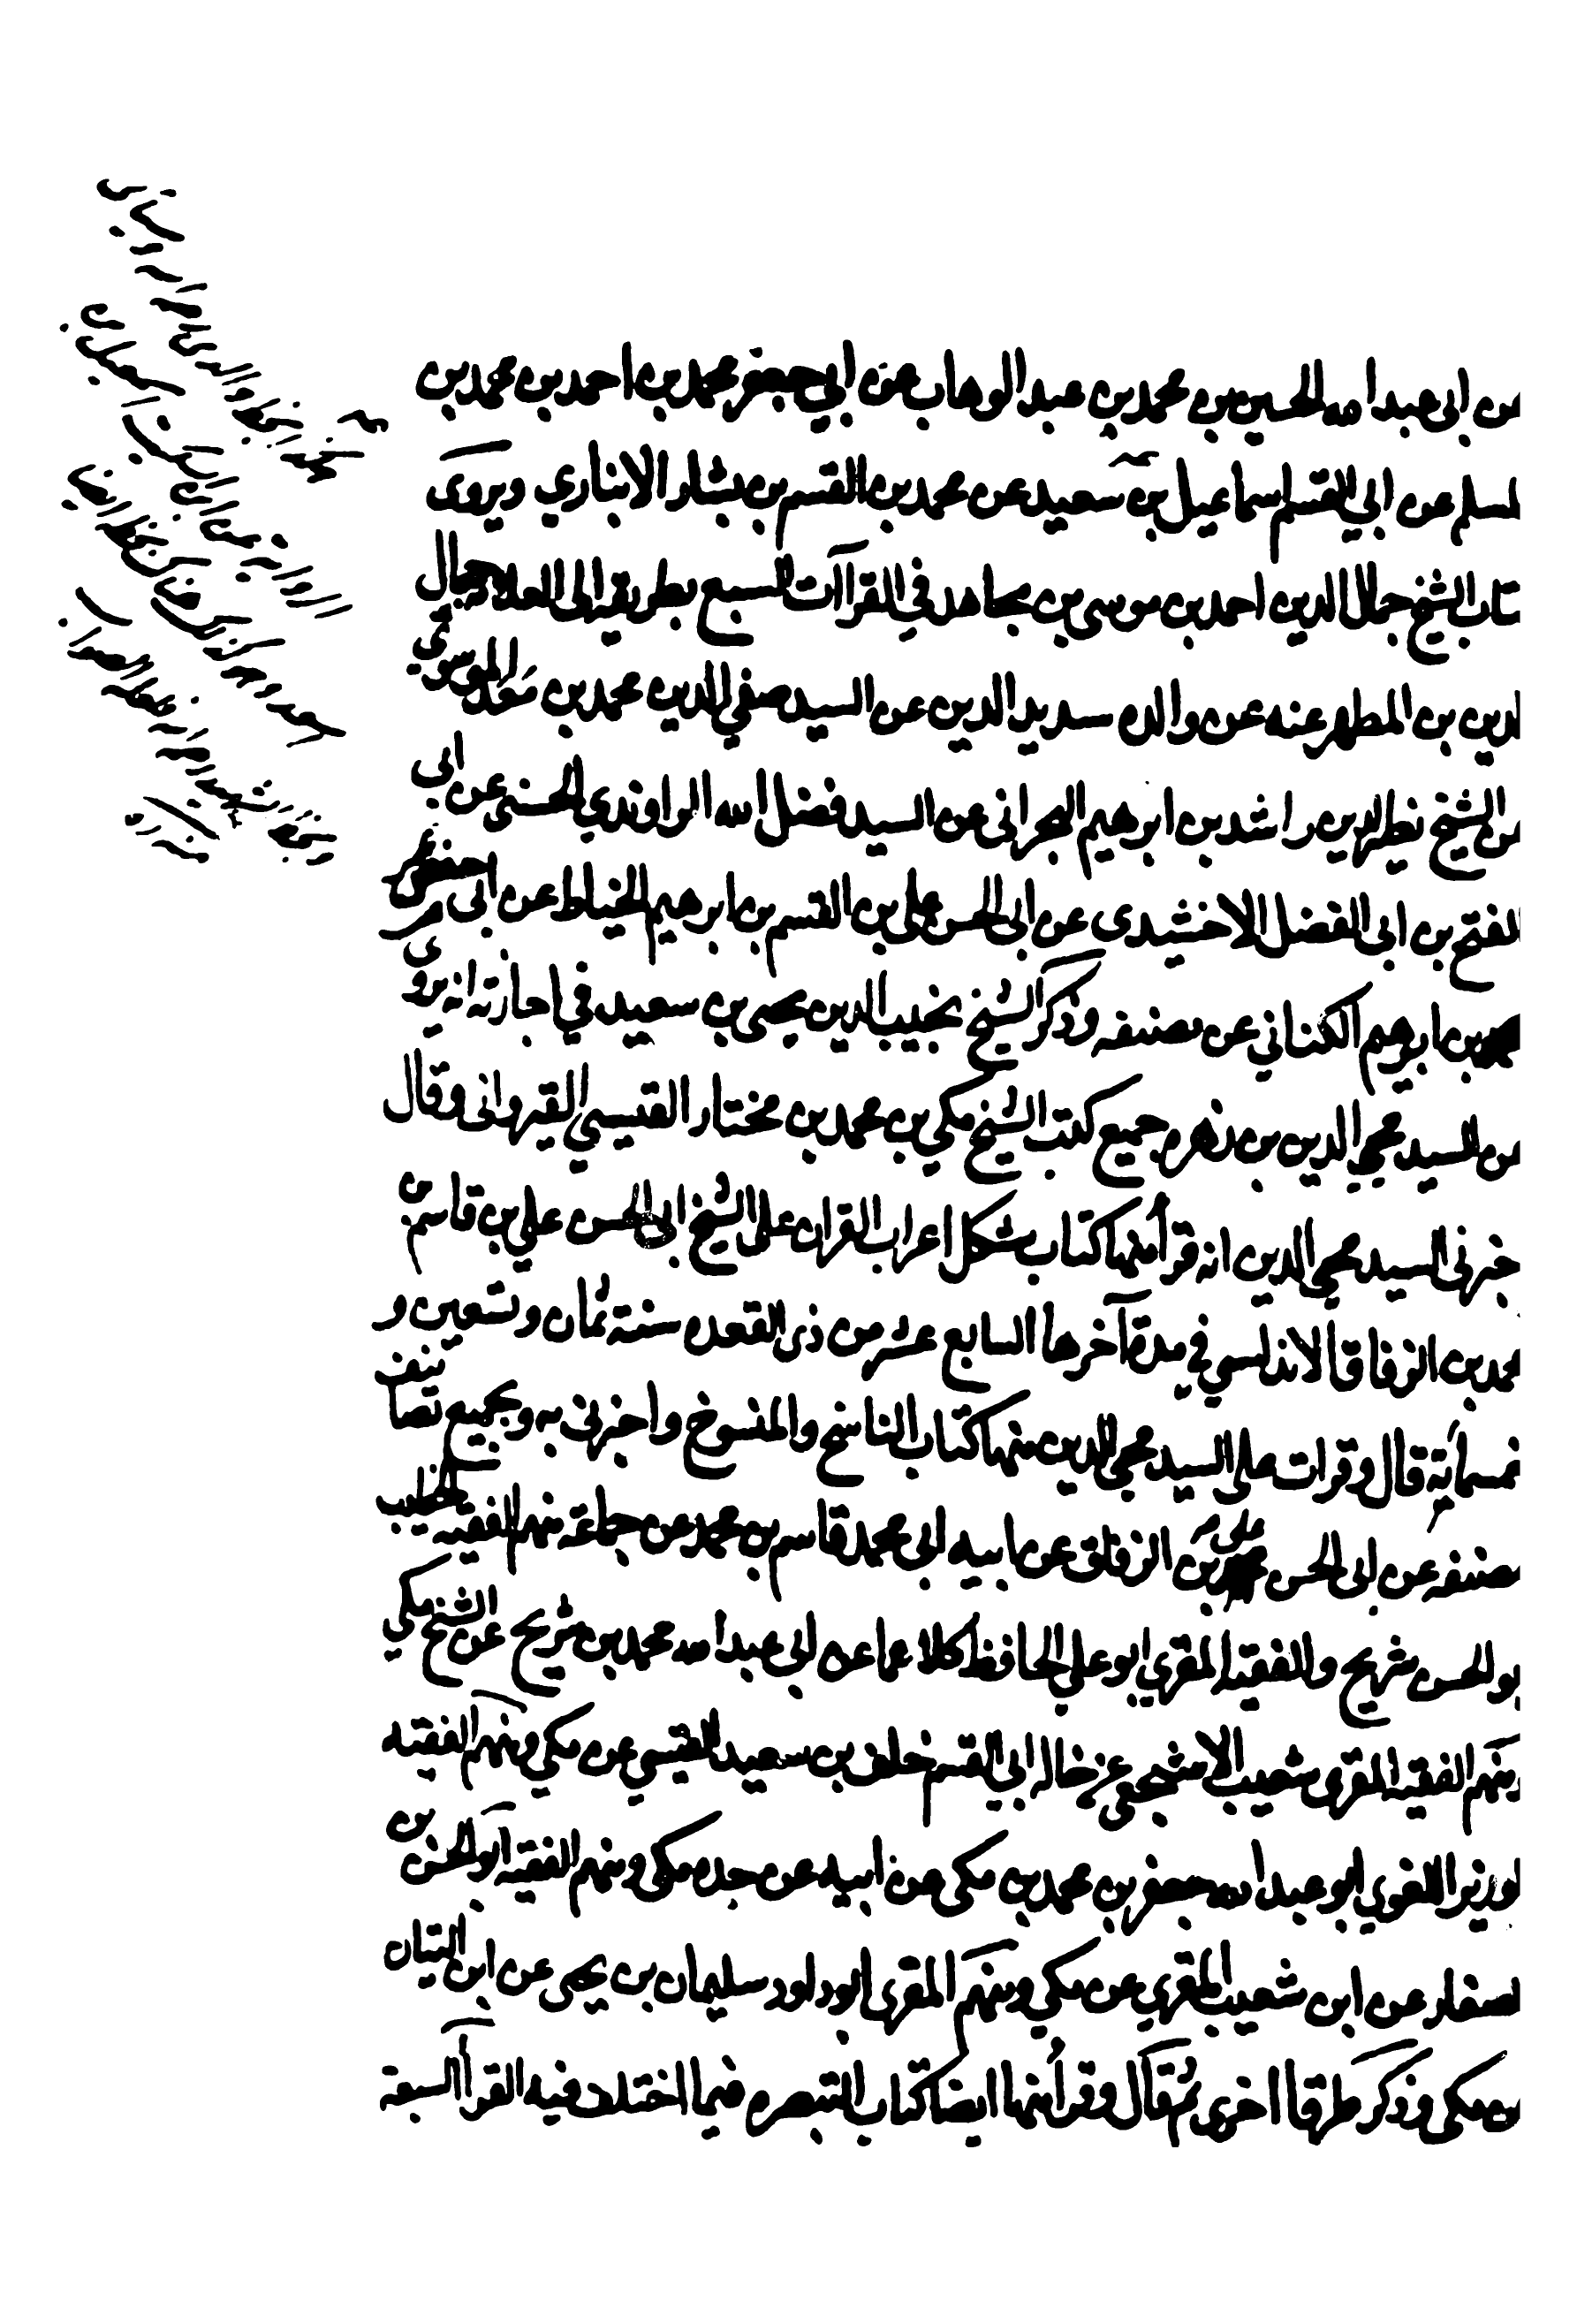 عن ابي عبد الله الحسين بن محمد بن عبد الوهاب عن ابي جعفر محمد بن احمد بن محمد بن
لسلم عن ابي القسم اسماعيل بن سعيد عن محمد بن القسم بن بشار الانباري ويروى
تاب الشيخ جمال الدين احمد بن موسى بن مجاهد في القراآت السبع بطريقه الى العلامة جمال
لدين بن المطهر عنه عن والده سديد الدين عن السيد صفي الدين محمد بن معد الموسوي
عن الشيخ نصير الدين راشد بن ابرهيم البحراني عن السيد فضل الله الراوندي الحسني عن ابي
لفتح بن ابي الفضل الاخشيدي عن ابي الحسن علي بن القسم بن ابرهيم الخياط عن ابي حفص عمر
بن ابرهيم الكناني عن مصنفه وذكر الشيخ نجيب الدين يحيى بن سعيد في اجازته انه يروي
عن السيد محيي الدين بن زهره جميع كتب الشيخ مكي بن محمد بن مختار القيسي القيرواني وقال
خبرني السيد محيي الدين انه قرأ منها كتاب مشكل اعراب القران على الشيخ ابي الحسن علي بن قاسم بن
محمد بن الزقاق الاندلسي في مدة آخرها السابع عشر من ذي القعده سنة ثمان وتسعين و
خمسمأية قال وقرات على السيد محيي الدين منها كتاب الناسخ والمنسوخ واخبرني به وبجميع تصانيف
مصنفه عن ابي الحسن علي بن الزقاق عن ابيه ابي محمد قاسم بن محمد عن جماعة منهم الفقيه الخطيب
بو الحسن شريح والفقيه المقري ابو علي الحافظ كلاهما عن ابي عبد الله محمد بن شريح عن الشيخ مكي
ومنهم الفقيه المقرى شعيب الاشجعي عن خاله ابي القسم خلف بن سعيد القيسي عن مكي ومنهم الفقيه
لوزير اللغوي ابو عبد الله جعفر بن محمد بن مكي عن ابيه عن جده مكي ومنهم الفقيه ابو الحسن بن
لصفار عن ابن شعيب المقري عن مكي ومنهم المقرى ابو داود سليمان بن يحيى عن ابن البيان
عن مكي وذكر طرقا اخرى ثم قال وقرأ منها ايضا كتاب التبصره فيما اختلف فيه القرأ السبعة